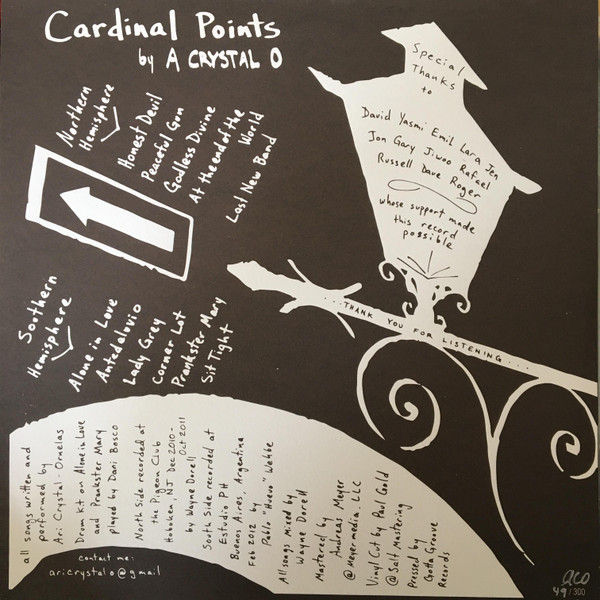 Cardinal Points
by A CRYSTAL O
Northern
Hemisphere
Honest Devil
Peaceful Gun
Godless Divine
At the end of the
World
Last New Band
Southern
Hemisphere
Alone in Love
Antedaluvio
Lady Grey
Corner Lot
Prankster Mary
Sit Tight
Special
Thanks
to
David Yasmi Emil Lara Jen
Jon Gary Jiwoo Rafael
Russell Dave Roger
whose support made
this record
possible
...THANK YOU FOR LISTENING...
all songs written and
performed by
Ari Crystal-Ornelas
Drum Kit on Alone in Love
and Prankster Mary
played by Dani Bosco
North Side recorded at
the Pigeon Club
Hoboken NJ Dec 2010-
Oct 2011
by Wayne Dorell
South Side recorded at
Estudio PH
Buenos Aires, Argentina
Feb 2012 by
Pablo "Huevo" Wehbe
All songs mixed by
Wayne Dorell
Mastered by
Andreas Meyer
@Meyermedia, LLC
Vinyl Cut by Paul Gold
@Salt Mastering
Pressed by
Gotta Groove
Records
contact me:
aricrystalo@gmail
aco
49/300